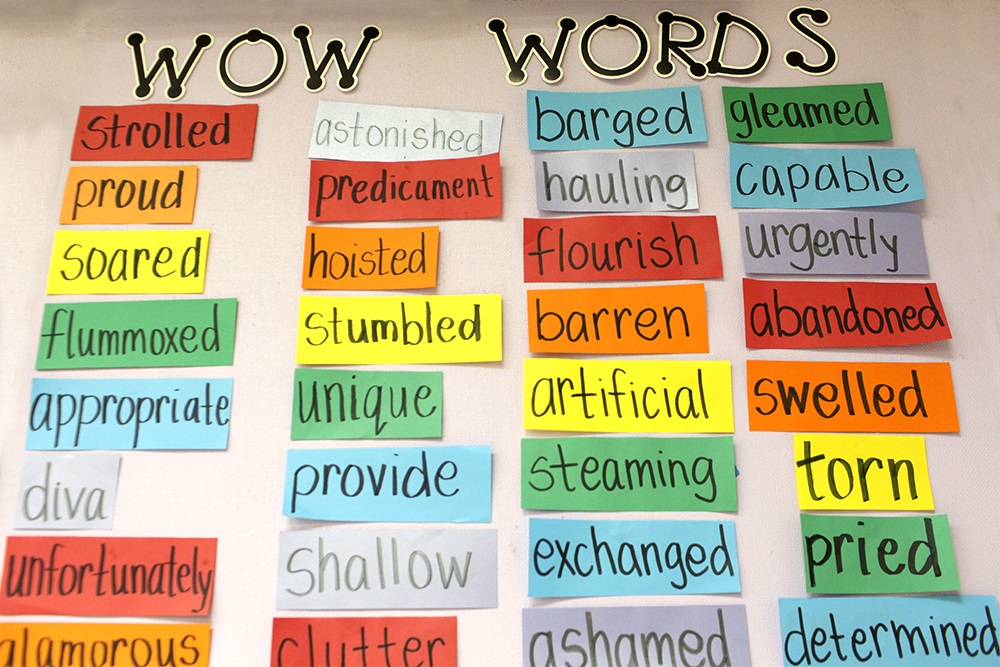 WOW WORDS
strolled
proud
soared
flummoxed
appropriate
diva
unfortunately
glamorous
astonished
predicament
hoisted
stumbled
unique
provide
shallow
clutter
barged
hauling
flourish
barren
artificial
steaming
exchanged
ashamed
gleamed
capable
urgently
abandoned
swelled
torn
pried
determined